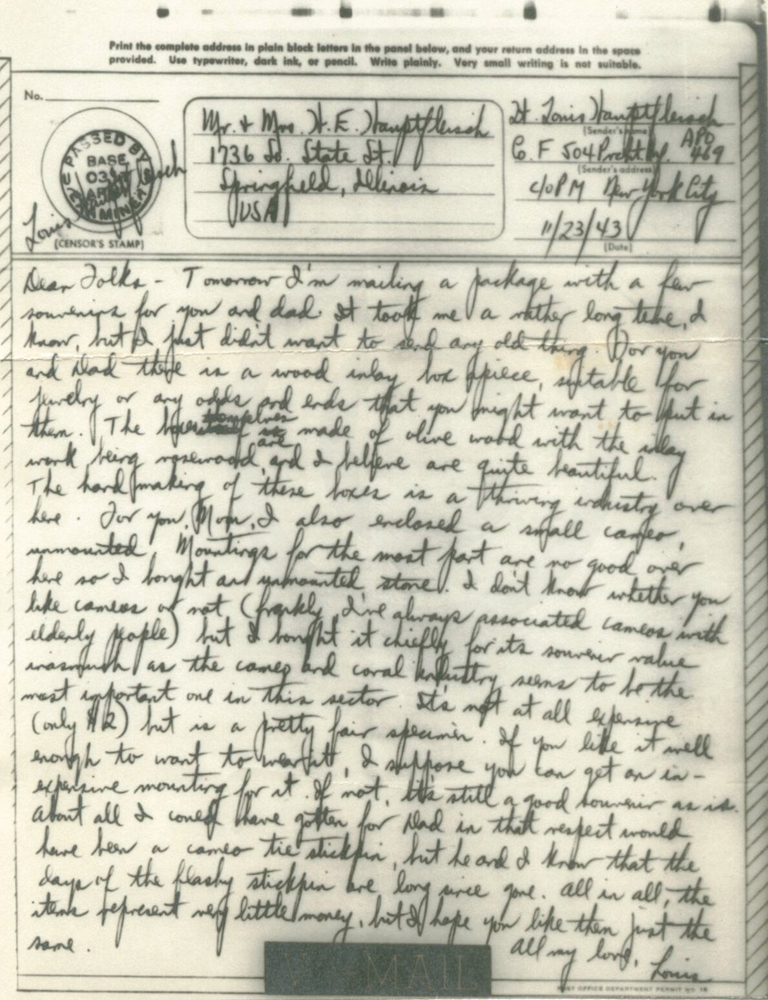 Print the complete address in plain block letters in the panel below, and your return address in the space
provided. Use typewriter, dark ink, or pencil. Write plainly. Very small writing is not suitable.
No.
PASSED BY
BASE
ARMY
EXAMINER
Louis Hauptfleisch
(CENSOR'S STAMP)
Mr. & Mrs. H. E. Hauptfleisch
1736 So. State St.
Springfield, Illinois
USA
Lt. Louis Hauptfleisch
(Sender's name)
Co. F 504 Prcht Inf. APO 469
(Sender's address)
c/o PM New York City
11/23/43
(Date)
Dear Folks - Tomorrow I'm mailing a package with a few
souvenirs for you and dad. It took me a rather long time, I
know, but I just didn't want to send any old thing. For you
and Dad there is a wood inlay box apiece, suitable for
jewelry or any odds and ends that you might want to put in
them. The boxes themselves are made of olive wood with the inlay
work being rosewood, and I believe are quite beautiful.
The hand making of these boxes is a thriving industry over
here. For you, Mom, I also enclosed a small cameo,
unmounted. Mountings for the most part are no good over
here so I bought an unmounted stone. I don't know whether you
like cameos or not (frankly, I've always associated cameos with
elderly people) but I bought it chiefly for its souvenir value
inasmuch as the cameo and coral industry seems to be the
most important one in this sector. It's not at all expensive
(only $12) but is a pretty fair specimen. If you like it well
enough to want to wear it, I suppose you can get an in-
expensive mounting for it. If not, it's still a good souvenir as is.
About all I could have gotten for Dad in that respect would
have been a cameo tie stickpin, but he and I know that the
days of the flashy stickpin are long since gone. All in all, the
items represent very little money, but I hope you like them just the
same. All my love, Louis
V-MAIL
POST OFFICE DEPARTMENT PERMIT NO.